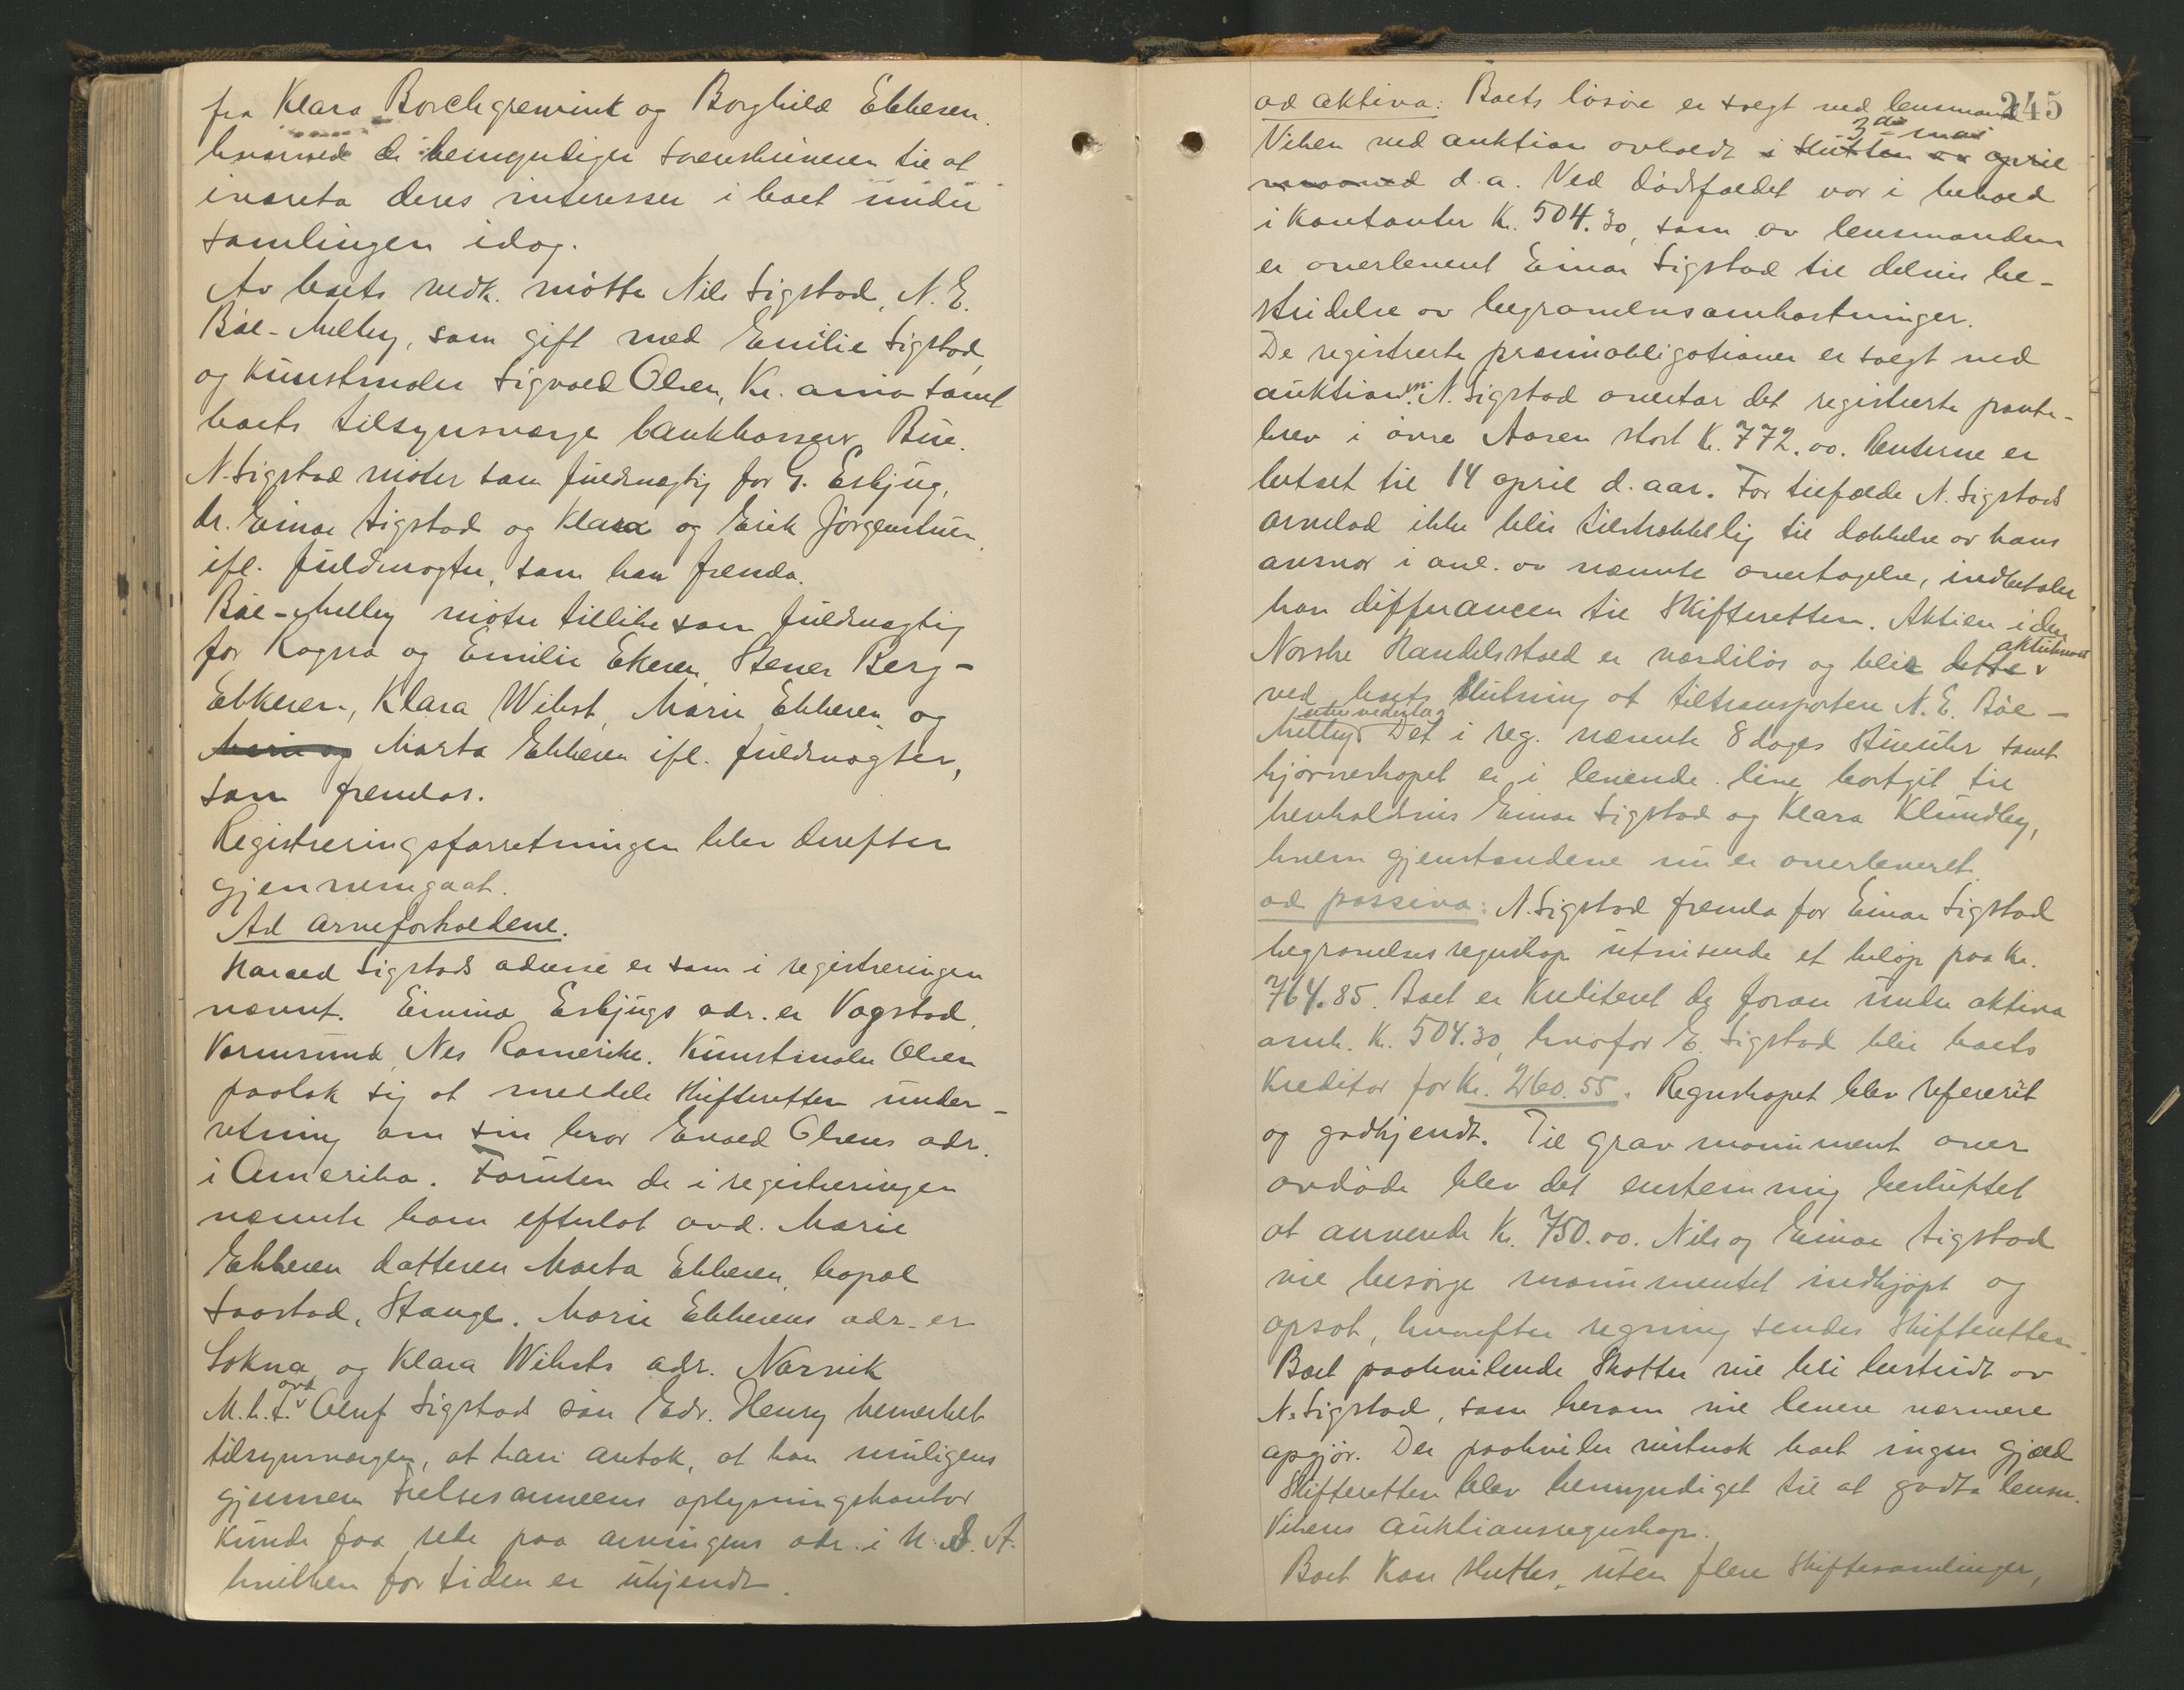 fra Klara Borchgrevink og Borghild Ekkeren.
hvorved de bemyndiger svenskeneren til at
ivareta deres interesser i boet under
samlingen idag.
Av boets vedk. møtte Nils Sigstad, N. E.
Bøe-Melby, som gift med Emilie Sigstad,
og Kunstmaler Sigvald Olsen, Kr. ania samt
boets tilsynsværge bankkasserer Bue.
N. Sigstad møter som fuldmægtig for G. Esbjug,
dr. Einar Sigstad og Klara og Erik Jørgenstuen,
ifl. fuldmagter, som han fremla.
Bøe-Melby møter tillike som fuldmægtig
for Ragna og Emilie Ekeren, Stener Berg-
Ekkeren, Klara Wibst, Marie Ekkeren og
Marie og Marta Ekkeren ifl. fuldmagter,
som fremlas.
Registreringsforretningen blev derefter
gjennemgaat.
Ad arveforholdene.
Harald Sigstads adresse er som i registreringen
nævnt. Emma Esbjugs adr. er Vagstad,
Vormsund, Nes Romerike. Kunstmaler Olsen
paatok sig at meddele Skifteretten under-
retning om sin bror Evald Olsens adr.
i Amerika. Foruten de i registreringen
nævnte barn efterlot avd. Marie
Ekkeren datteren Marta Ekkeren, bopæl
Saastad, Stange. Marie Ekkerens adr. er
Sokna og Klara Wibsts adr. Narvik
M.h.t. avd Oluf Sigstads søn Edv. Henry bemerket
tilsynsværgen, at han antok, at han muligens
gjennem Frelsesarmeens oplysningskontor
kunde faa rede paa arvingens adr. i U. S. A.
hvilken for tiden er ukjendt.
245
ad aktiva: Boets løsøre er solgt ved lensmand
Viken ved auktion avholdt i slutten av april 3die mai
maaned d.a. Ved dødsfaldet var i behold
i kontanter Kr. 504.30, som av lensmanden
er overlevert Einar Sigstad til delvis be-
stridelse av begravelsesomkostninger.
De registrerte premieobligationer er solgt ved
auktionen. N. Sigstad overtar det registrerte pante-
brev i øvre Aasen stort Kr. 772.00. Renterne er
betalt til 14 april d. aar. For tilfælde N. Sigstads
arvelod ikke blir tilstrækkelig til dækkelse av hans
ansvar i anl. av nævnte overtagelse, indbetaler
han differancen til Skifteretten. Aktien i den
Norske Handelsstand er værdiløs og blir dette aktiebrev
ved boets slutning at tiltransportere N. E. Bøe-
Melby uten vederlag. Det i reg. nævnte 8 dages Stueuhr samt
hjørneskapet er i levende live bortgit til
henholdsvis Einar Sigstad og Klara Klundby,
hvem gjenstandene nu er overleveret.
ad passiva: N. Sigstad fremla for Einar Sigstad
begravelsesregnskap utvisende et beløp paa Kr.
764.85. Boet er krediteret de foran under aktiva
omh. Kr. 504.30, hvorfor E. Sigstad blir boets
kreditor for Kr. 260.55. Regnskapet blev refereret
og godkjendt. Til gravmonument over
avdøde blev det enstemmig besluttet
at anvende Kr. 750.00. Nils og Einar Sigstad
vil besørge monumentet indkjøpt og
opsat, hvorefter regning sendes Skifteretten.
Boet paahvilende skatter vil bli bestridt av
N. Sigstad, som herom vil levere nærmere
opgjør. Der paahviler vistnok boet ingen gjæld
Skifteretten blev bemyndiget til at godta lensm.
Vikens auktionsregnskap.
Boet kan sluttes, uten flere Skiftesamlinger,